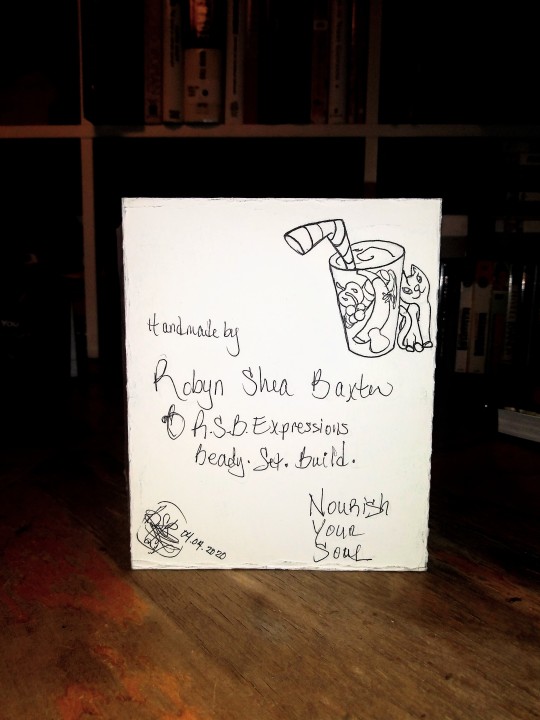 Handmade by
Robyn Shea Baxter
R.S.B. Expressions
Ready. Set. Build.
Nourish
Your
Soul
04.04.2020